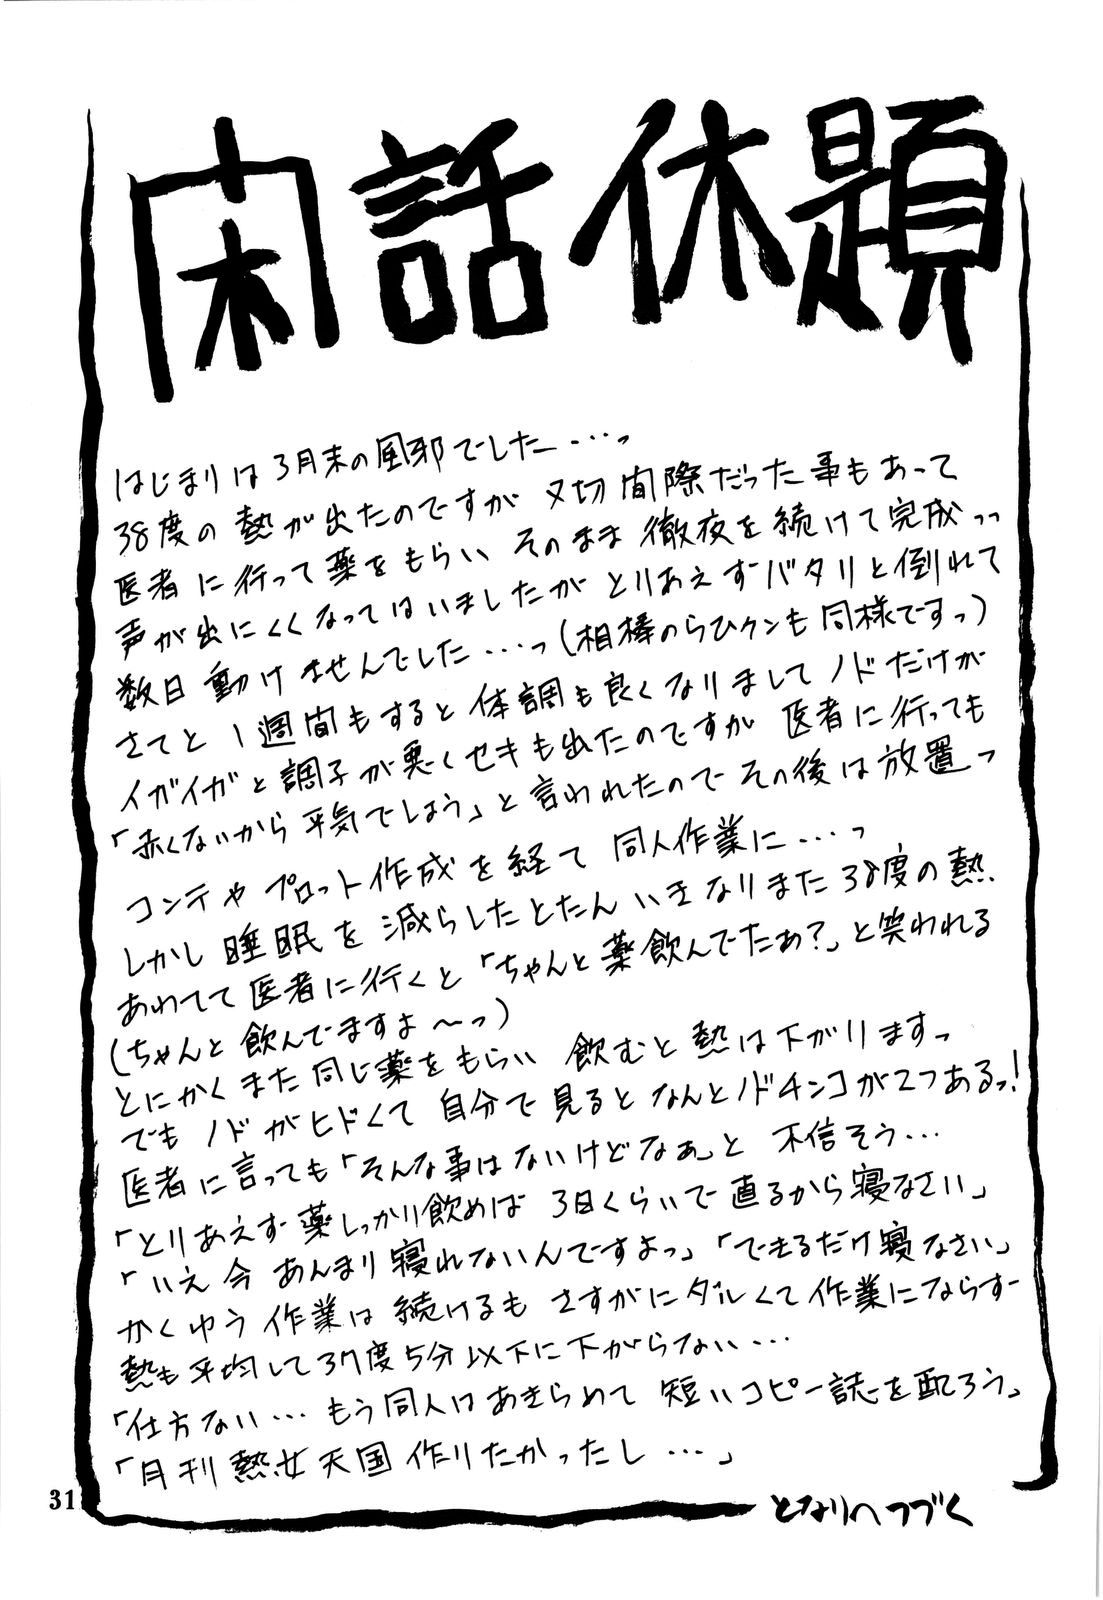 閑話休題
はじまりは3月末の風邪でした…っ
38度の熱が出たのですが〆切間際だった事もあって
医者に行って薬をもらい そのまま徹夜を続けて完成っっ
声が出にくくなってはいましたが とりあえずバタリと倒れて
数日動けませんでした…っ(相棒のらひクンも同様ですっ)
さてと1週間もすると体調も良くなりまして ノドだけが
イガイガと調子が悪くセキも出たのですが 医者に行っても
「赤くないから平気でしょう」と言われたので その後は放置っ
コンテや プロット作成を経て 同人作業に…っ
しかし睡眠を減らしたとたん いきなりまた38度の熱
あわてて医者に行くと「ちゃんと薬飲んでたぁ?」と笑われる
(ちゃんと飲んでますよ〜っ)
とにかくまた同じ薬をもらい 飲むと熱は下がりますっ
でも ノドがヒドくて 自分で見るとなんとノドチンコが2つあるっ!
医者に言っても「そんな事はないけどなぁ」と 不信そう…
「とりあえず薬しっかり飲めば 3日くらいで直るから寝なさい」
「いえ今 あんまり寝れないんですよっ」「できるだけ寝なさい」
かくゆう作業は続けるも さすがにダルくて作業にならず
熱も平均して37度5分以下に下がらない…
「仕方ない…もう同人はあきらめて 短いコピー誌を配ろう」
「月刊熱女天国作りたかったし…」
となりへつづく
31